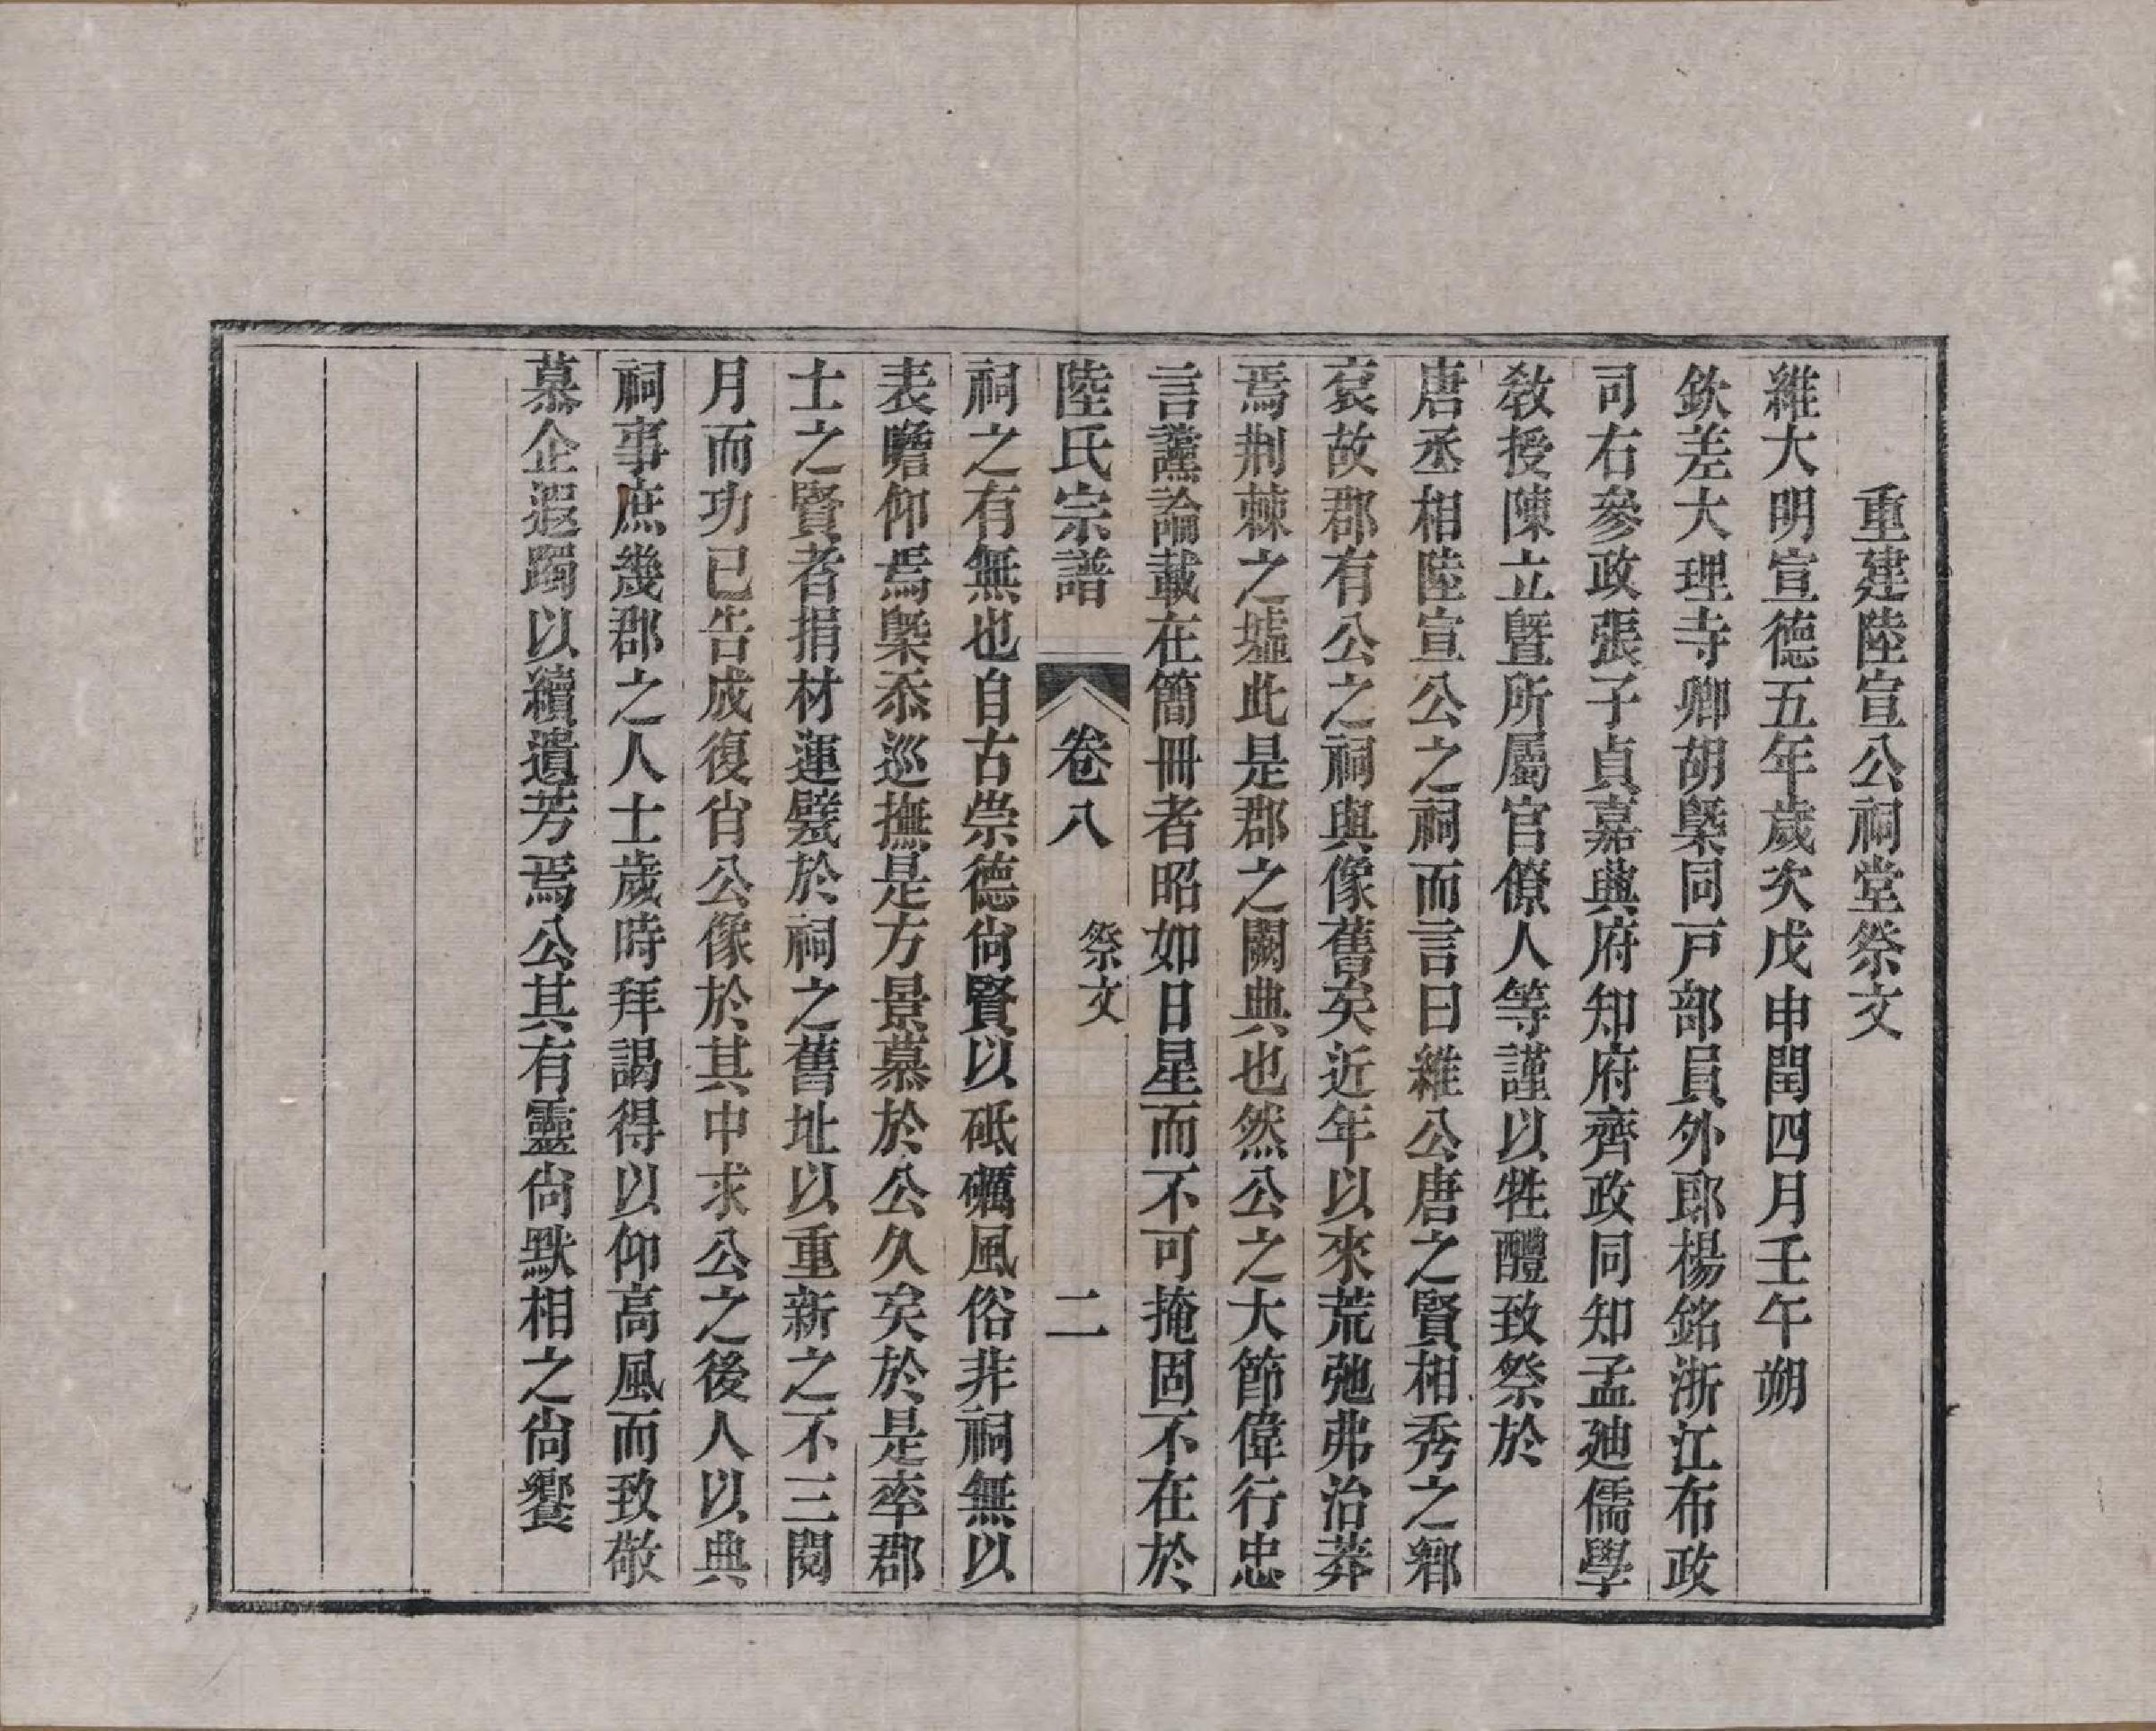 重建陸宣公祠堂祭文
維大明宣德五年歲次戊申閏四月壬午朔
欽差大理寺卿胡槩同戸部員外郎楊銘浙江布政
司右參政張子貞嘉興府知府齊政同知孟迪儒學
敎授陳立曁所屬官僚人等謹以牲醴致祭於
唐丞相陸宣公之祠而言曰維公唐之賢相秀之鄕
袞故郡有公之祠與像舊矣近年以來荒弛弗治莽
焉荆棘之墟此是郡之闕典也然公之大節偉行忠
言讜論載在簡冊者昭如日星而不可掩固不在於
陸氏宗譜 卷八 祭文 二
祠之有無也自古崇德尙賢以砥礪風俗非祠無以
表瞻仰焉槩忝巡撫是方景慕於公久矣於是率郡
士之賢者捐材運甓於祠之舊址以重新之不三閱
月而功已告成復肖公像於其中求公之後人以典
祠事庶幾郡之人士歲時拜謁得以仰高風而致敬
慕企遐躅以續遺芳焉公其有靈尙默相之尙饗